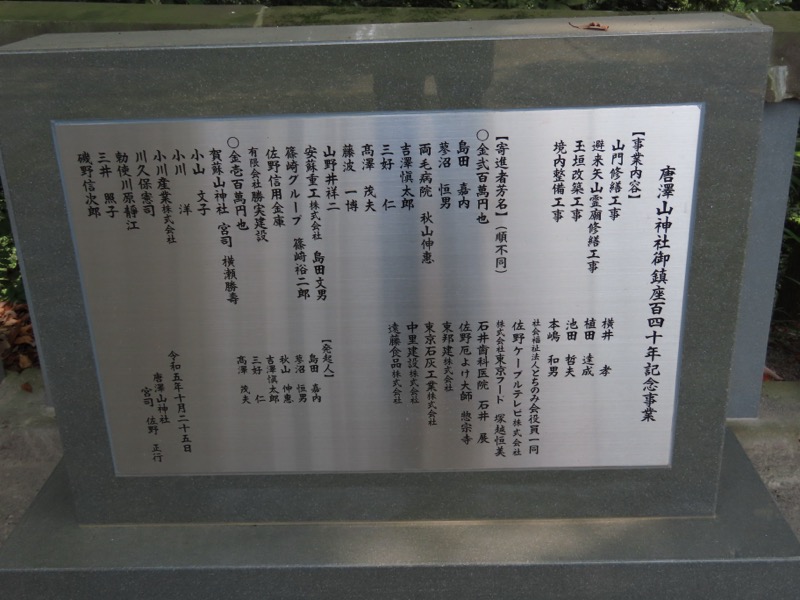 唐澤山神社御鎮座百四十年記念事業
【事業内容】
山門修繕工事
避来矢山霊廟修繕工事
玉垣改築工事
境内整備工事
【寄進者芳名】(順不同)
〇金弐百萬円也
島田 嘉内
蓼沼 恒男
両毛病院 秋山伸恵
吉澤慎太郎
三好 仁
髙澤 茂夫
藤波 一博
山野井祥二
安蘇重工株式会社 島田文男
篠﨑グループ 篠﨑裕二郎
佐野信用金庫
有限会社勝実建設
〇金壱百萬円也
賀蘇山神社 宮司 横瀬勝壽
小山 文子
小川 洋
小川産業株式会社
川久保憲司
勅使川原靜江
三井 照子
磯野信次郎
横井 孝
植田 達成
池田 哲夫
本嶋 和男
社会福祉法人とちのみ会役員一同
佐野ケーブルテレビ株式会社
株式会社東京フード 塚越恒美
石井歯科医院 石井 展
佐野厄よけ大師 惣宗寺
東邦建株式会社
東京石灰工業株式会社
中里建設株式会社
遠藤食品株式会社
【発起人】
島田 嘉内
蓼沼 恒男
秋山 伸恵
吉澤慎太郎
三好 仁
髙澤 茂夫
令和五年十月二十五日
唐澤山神社
宮司 佐野 正行